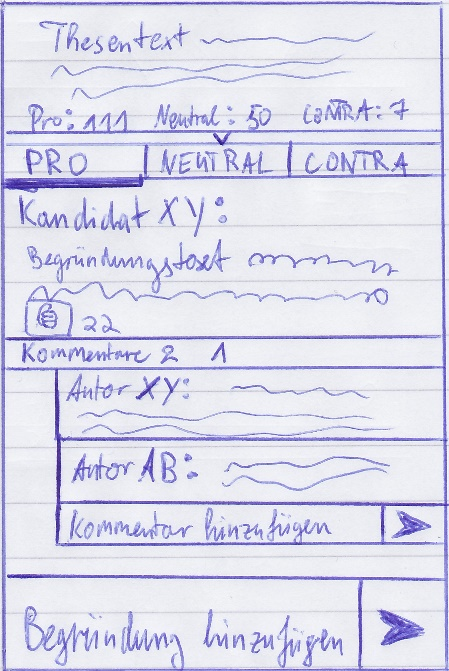 Thesentext
Pro: 111 Neutral: 50 CONTRA: 7
PRO NEUTRAL CONTRA
Kandidat XY:
Begründungstext
22
Kommentare 2 1
Autor XY:
Autor AB:
Kommentar hinzufügen
Begründung hinzufügen